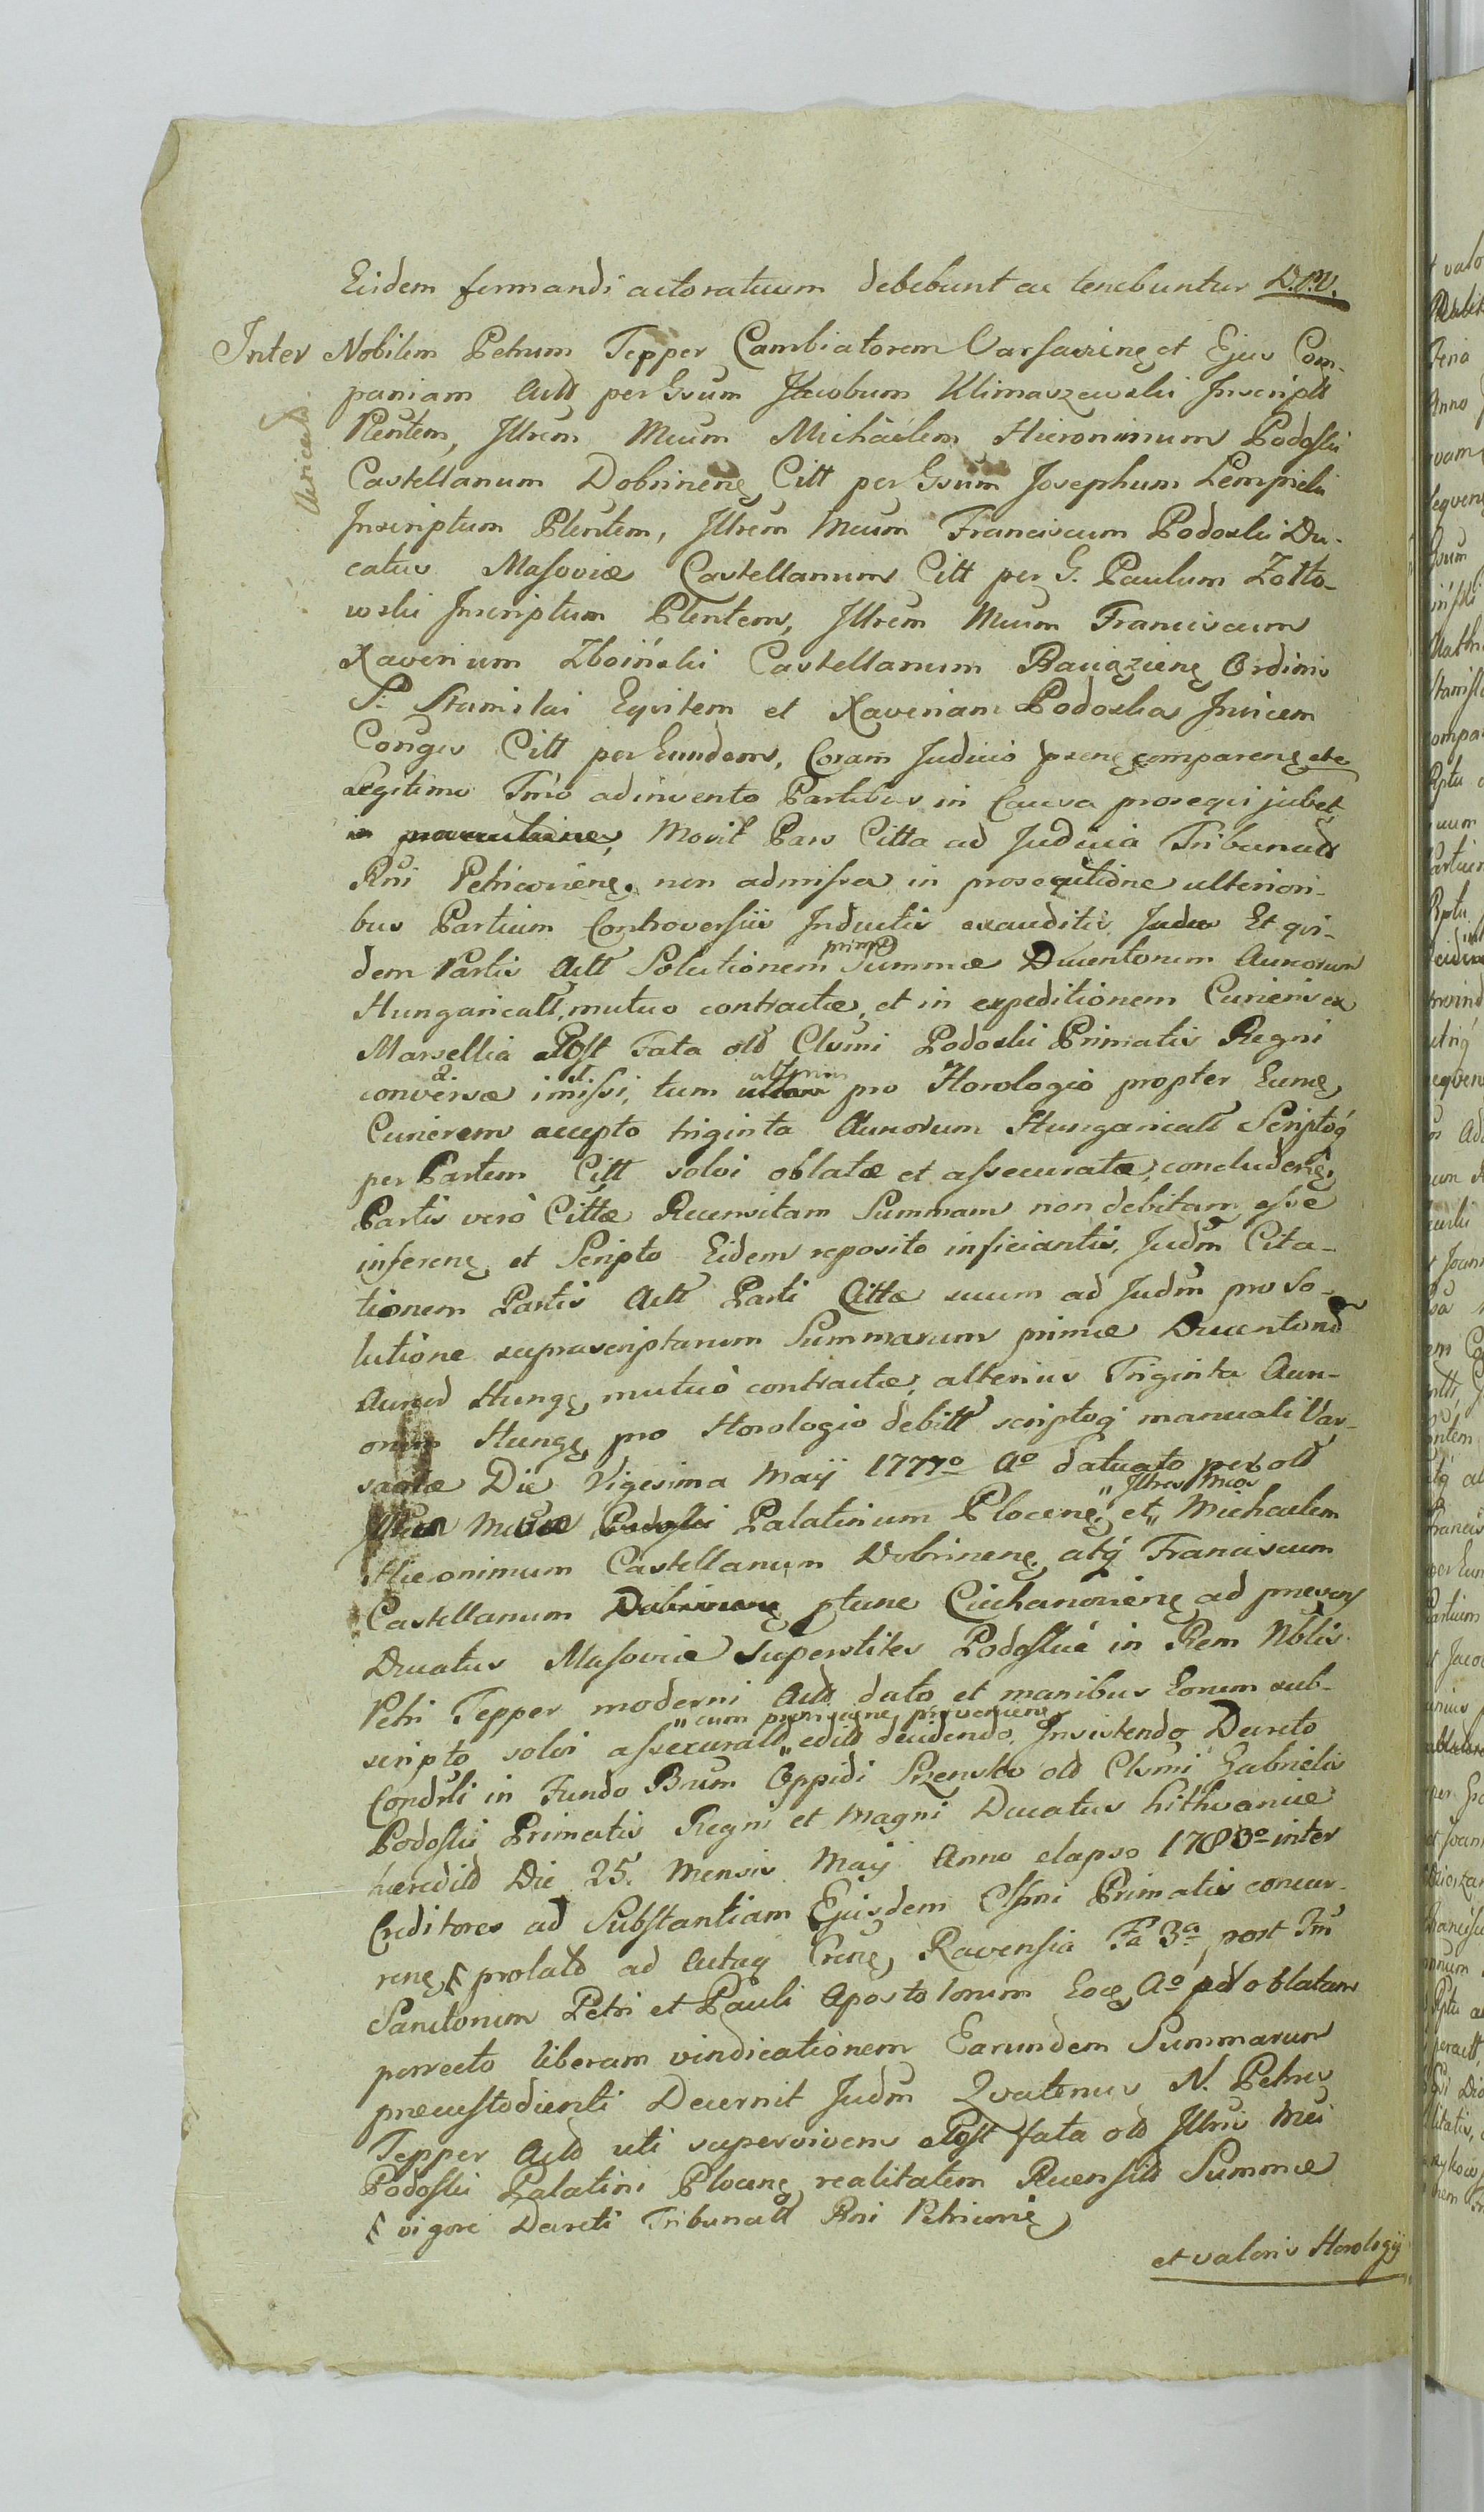 Eidem firmandi actoratuum debebunt ac tenebuntur D.P.V.
Inter Nobilem Petrum Tepper Cambiatorem Varsavienę et Ejus Com-
paniam Actt per Gsum Jacobum Klimaszewski Inscriptt
Plentem, Illrem Mcum Michaelem Hieronimum Podoski
Castellanum Dobrinenę Citt per Gsum Josephum Lempicki
Inscriptum Plentem, Illrem Mcum Franciscum Podoski Du-
catus Masoviæ Castellanum Citt per G. Paulum Zołto-
wski Inscriptum Plentem, Illrem Mcum Franciscum
Xaverium Zboiński Castellanum Raciązienę Ordinis
S. Stanislai Eqvitem et Xaveriam Podoska Invicem
Conges Citt per Eundem, Coram Judicio prsenę comparenę etc
Legitimo Tmo adinvento Partibus in Causa proseqvi jubet,
in Movit Pars Citta ad Judicia Tribunalt
Rni Petricovienę. non admissa in prosequtione ulteriori-
bus Partium Controversiis Inductis exauditis Et qvi-
dem Partis Actt Solutionem primo Summæ Ducentorum Aureorum
Hungaricall, mutuo contractæ, et in expeditionem Curieris ex
Marsellia Post Fata old Clsmi Podoski Primatis Regni
conversæ imissi, tum alterius pro Horologio propter Eumę
Curierem accepto triginta Aureorum Hungaricall Scriptoq
per Partem Citt solvi oblatæ et assecuratæ, concludenę,
Partis vero Cittæ Recensitam Summam non debitam esse
inferenę et Scripto Eidem reposito inficiantis, Judm Cita-
tionem Partis Actt Parti Cittæ suum ad Judm pro So-
lutione suprascriptarum Summarum primæ Ducentord
Aureord Hungę, mutuo contractæ, alterius Triginta Aure-
orum Hungę pro Horologio debitt scriptoq manuali Var-
saviæ Die Vigesima Maij 1777o Ao datuato per old
Palatinum Plocenę, et „Illres Mcos„ Michaelem
Hieronimum Castellanum Dobrinenę. atq Franciscum
Castellanum ptunc Ciechanovienę ad præsens
Ducatus Masoviæ superstites Podoskie in Rem Nblis
Petri Tepper moderni Actt dato et manibus Eorum sub-
scripto solvi assecuratt „cum provisione provenienę„ edild decidendo. Insistendo Decreto
Condsli in Fundo Bnum Oppidi Szrensko old Clsmi Gabrielis
Podoski Primatis Regni et Magni Ducatus Lithvaniæ
hæredild Die 25. Mensis Maij Anno elapso 1780o inter
Creditores ad Substantiam Ejusdem Clsmi Primatis concur-
renę, prolatd ad Actaq Crenę, Ravensia Fa 3a post Fm
Sanctorum Petri et Pauli Apostolorum Eoę Ao pd oblatam
porrecto liberam vindicationem Earundem Summarum
præcustodienti Decernit Judm Qvatenus N. Petrus
Tepper Actd uti supervivens Post fata old Illris Mci
Podoski Palatini Plocenę realitatem Recensitt Summæ
vigore Decreti Tribunalt Rni Petricovię
et valoris Horologij
Uricatt.